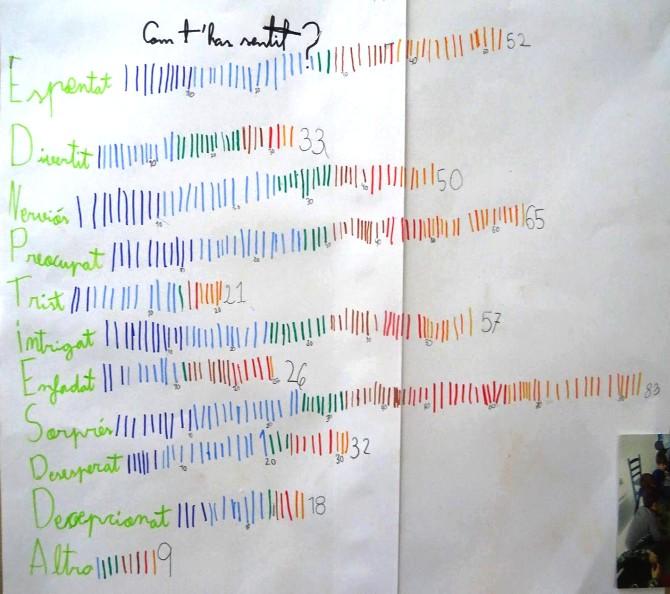 Com t'has sentit?
Espantat 52
Divertit 33
Nerviós 50
Preocupat 65
Trist 21
intrigat 57
Enfadat 26
Sorprés 83
Desesperat 32
Decepcionat 18
Altra 9